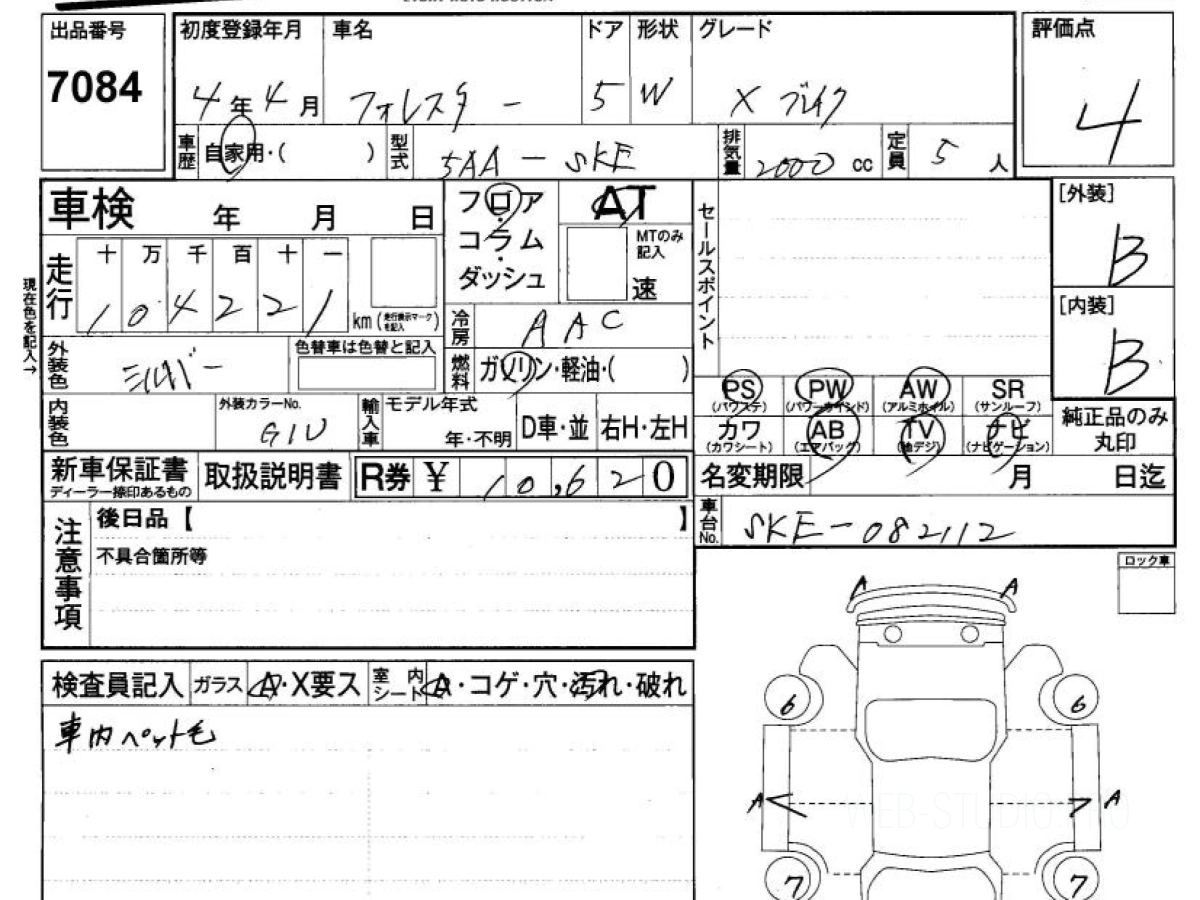 出品番号
7084
初度登録年月
4年4月
車名
フォレスター
ドア
5
形状
W
グレード
X ブレイク
評価点
4
車歴
自家用・( )
型式
5AA-SKE
排気量
2000 cc
定員
5 人
[外装]
B
[内装]
B
車検 年 月 日
現在色を記入→
走行
十 万 千 百 十 一
1 0 4 2 2 1
km (走行表示マークを記入)
フロア
・
コラム
・
ダッシュ
AT
MTのみ
記入
速
セールスポイント
冷房
AAC
燃料
ガソリン・軽油・( )
外装色
シルバー
色替車は色替と記入
内装色
外装カラーNo.
G1U
輸入車
モデル年式
年・不明
D車・並
右H・左H
PS
(パワステ)
PW
(パワーウインド)
AW
(アルミホイル)
SR
(サンルーフ)
カワ
(カワシート)
AB
(エアバッグ)
TV
(地デジ)
ナビ
(ナビゲーション)
純正品のみ
丸印
新車保証書
ディーラー捺印あるもの
取扱説明書
R券 ¥ 10,620
名変期限 月 日迄
車台No.
SKE-082112
注意事項
後日品【 】
不具合箇所等
ロック車
検査員記入
ガラス
A・X要ス
室内
シート
A・コゲ・穴・汚れ・破れ
車内ペット毛
A
A
6
6
A
A
7
7
WEB-STUDIO.PRO